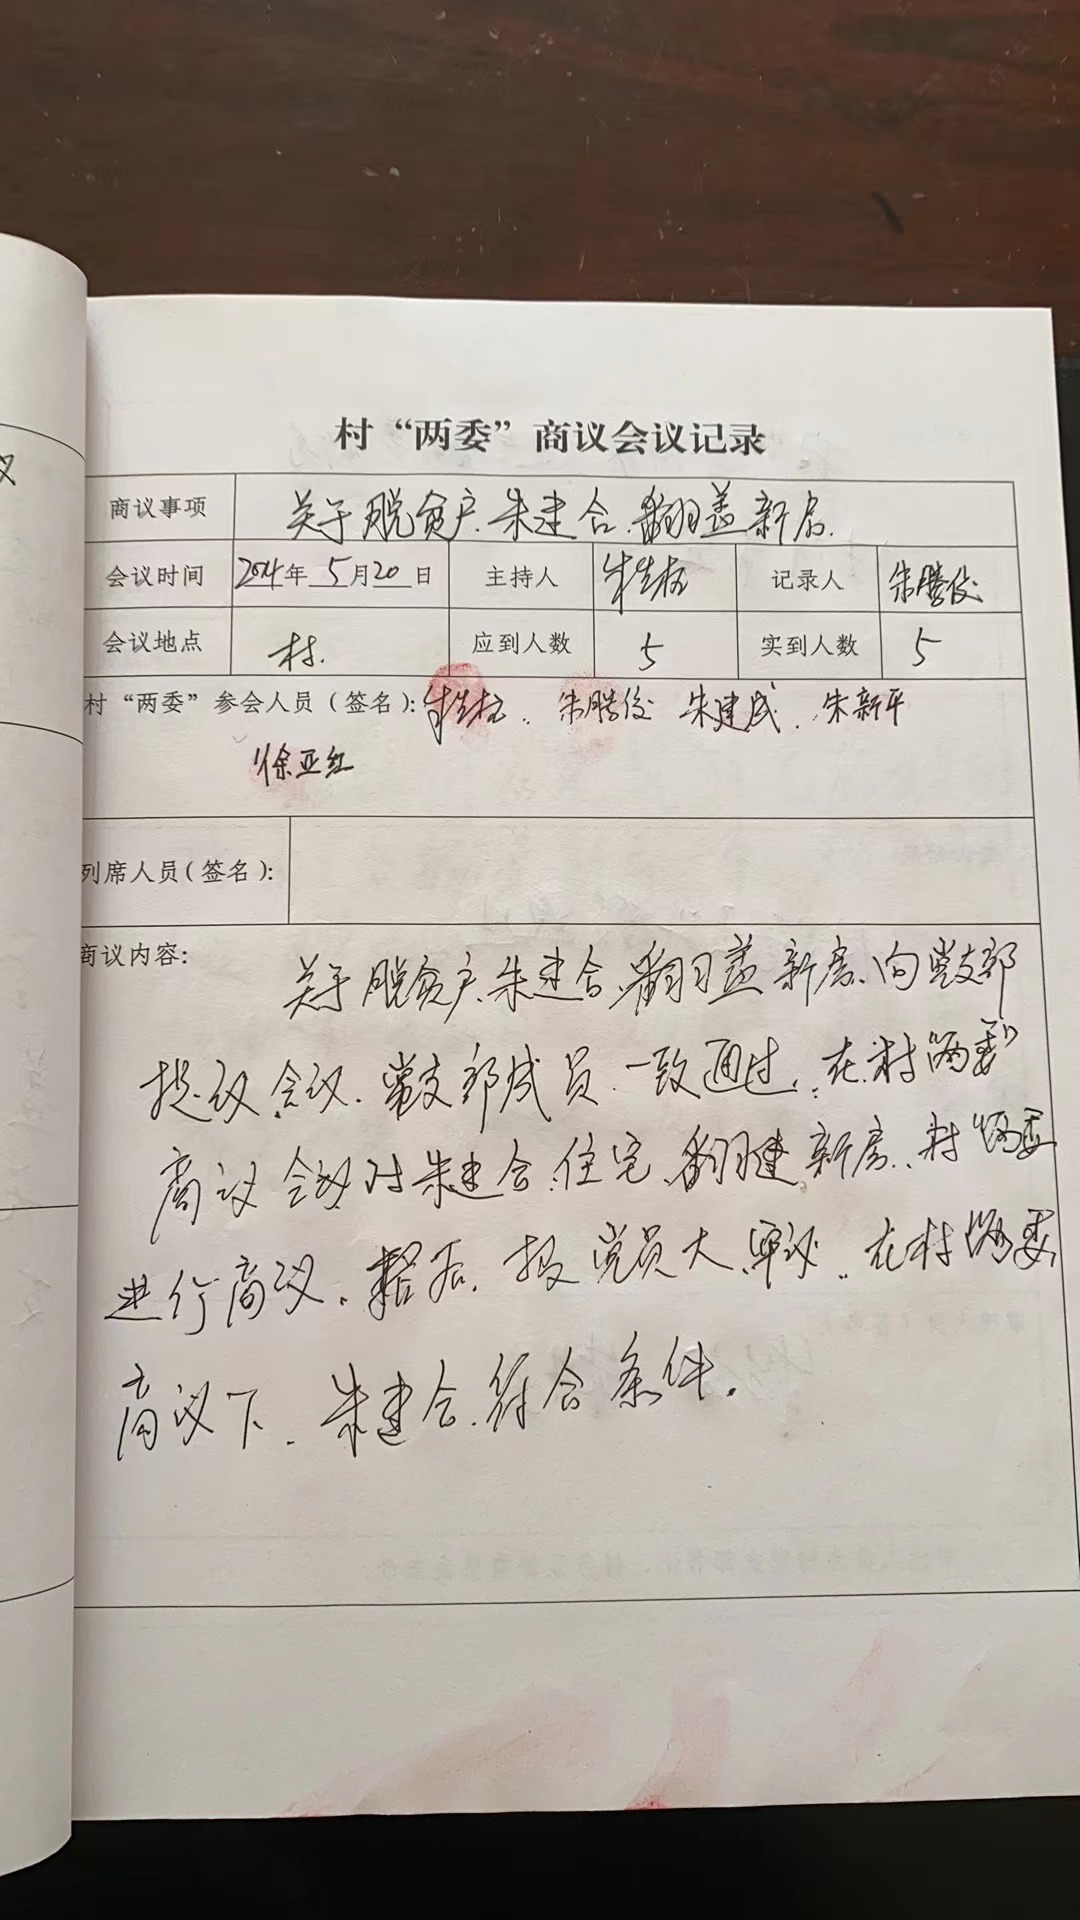 村“两委”商议会议记录
商议事项 关于脱贫户朱建合翻盖新房.
会议时间 2024年 5月20日 主持人 记录人 朱腾俊
会议地点 村. 应到人数 5 实到人数 5
村“两委”参会人员(签名): 朱腾俊 朱建成. 朱新平
徐亚红
列席人员(签名):
商议内容:
关于脱贫户.朱建合.翻盖新房.向党支部
提议会议.党支部成员一致通过.在村“两委”
商议会议对朱建合.住宅.翻建新房.村“两委
进行商议. 报党员大审议.在村“两委
商议下.朱建合.符合条件.